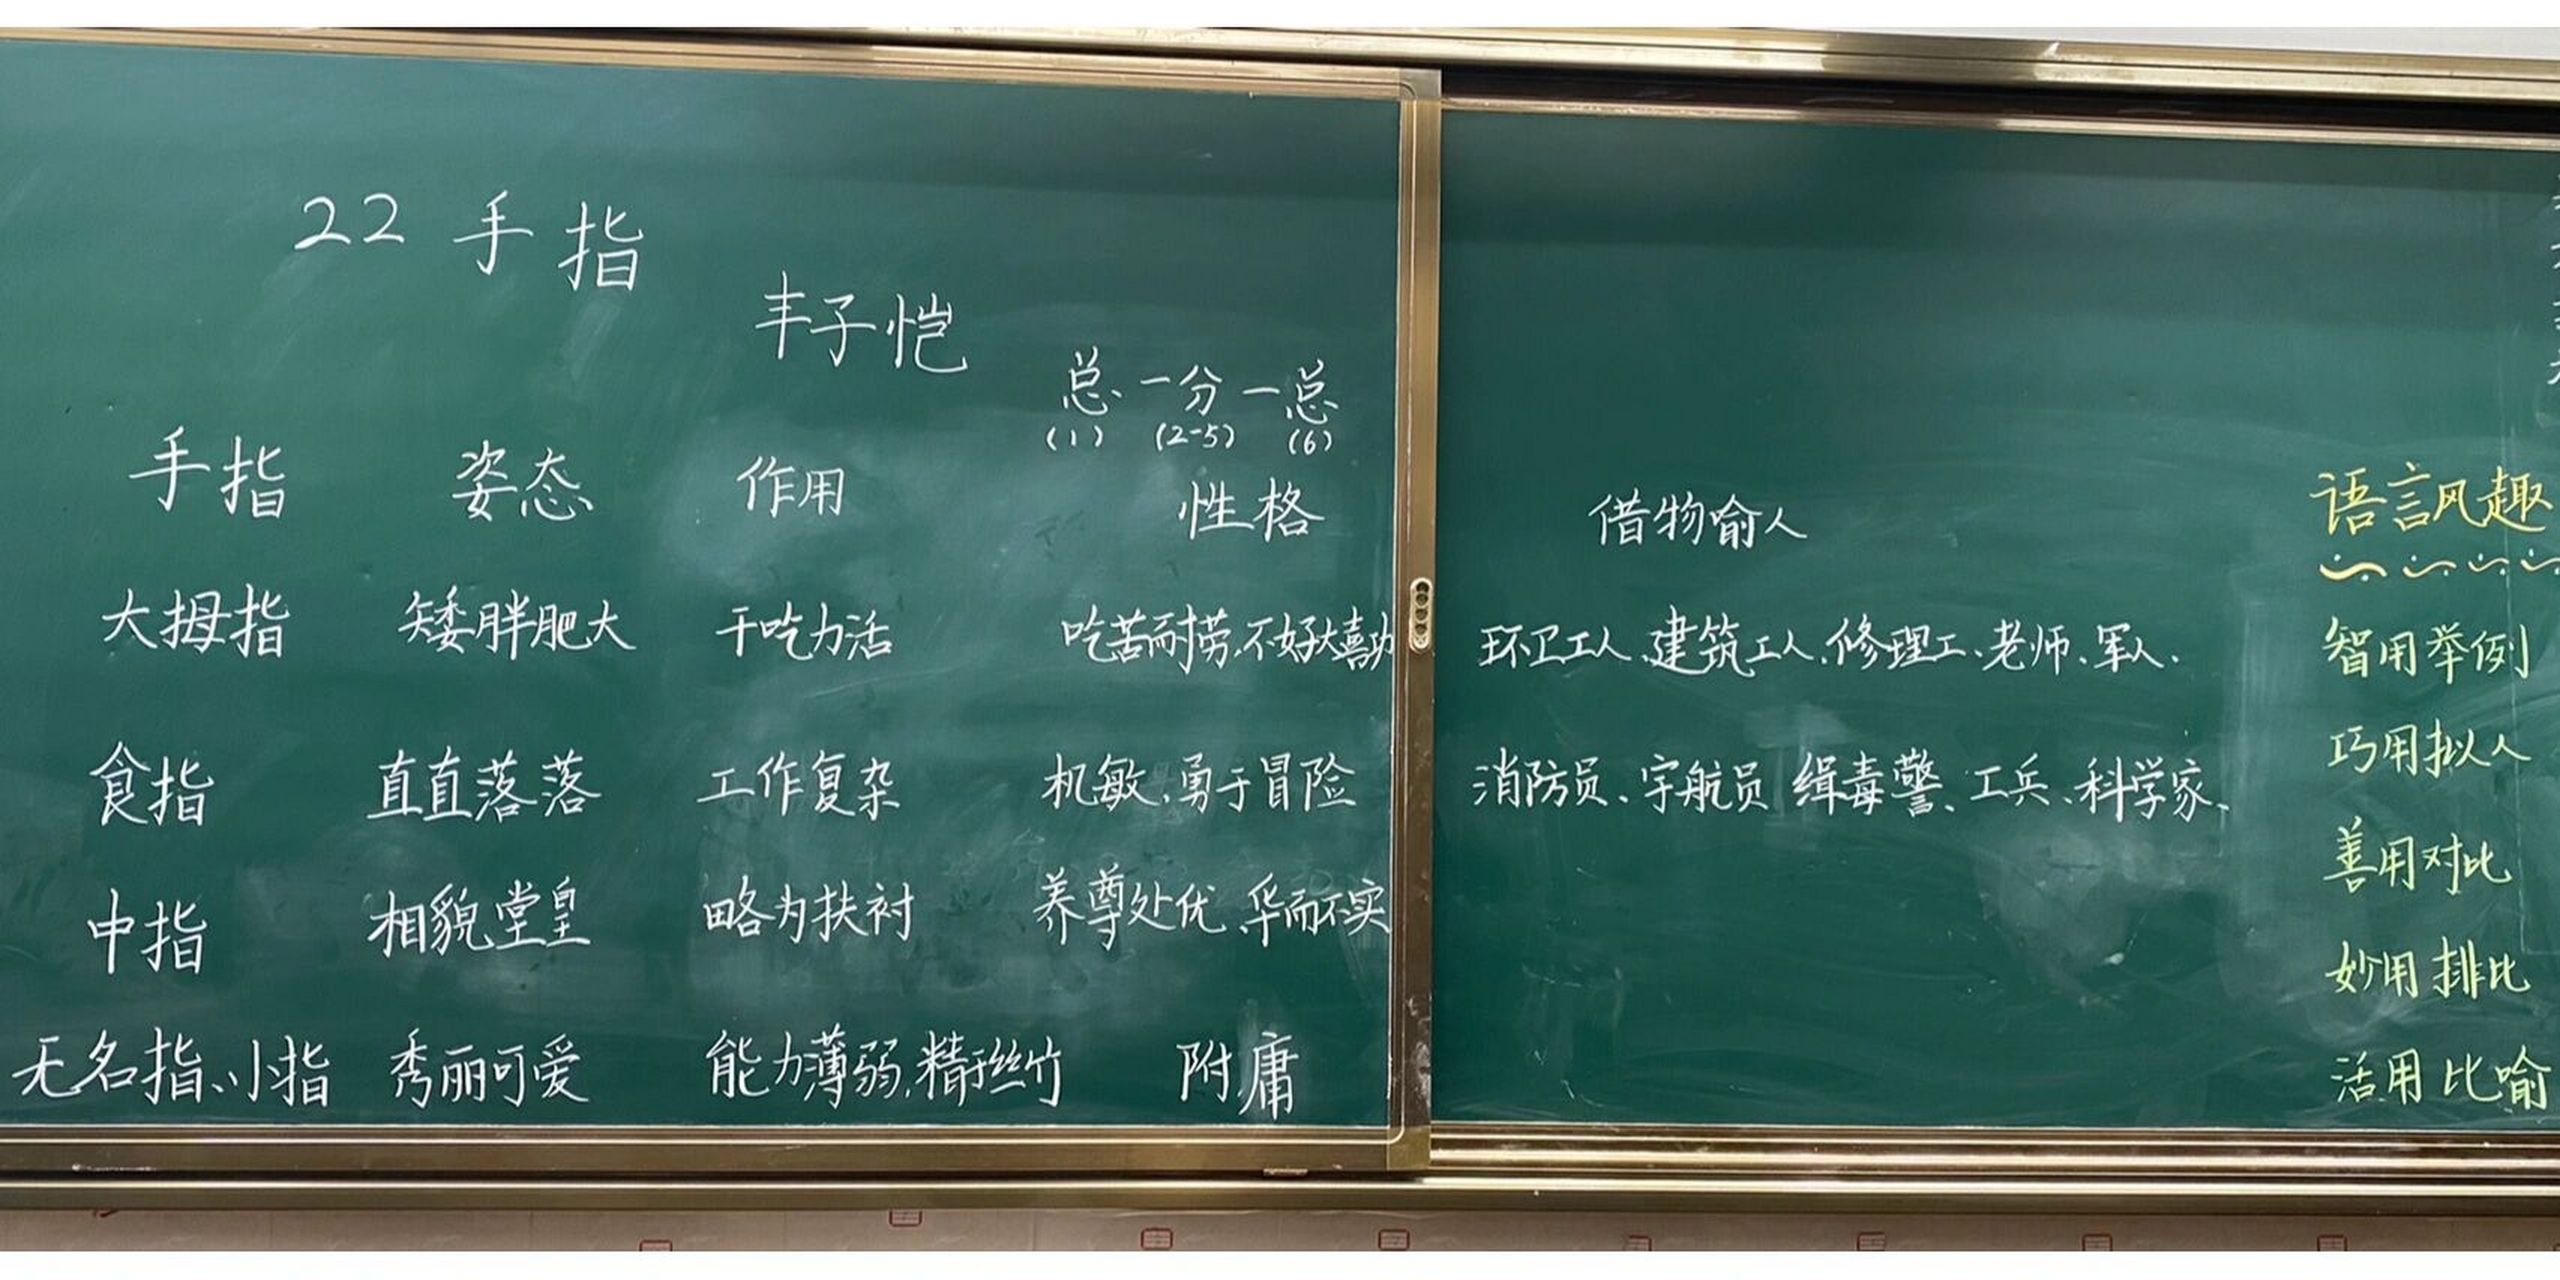 22 手指
丰子恺
总一分一总
(1) (2-5) (6)
手指 姿态 作用 性格
大拇指 矮胖肥大 干吃力活 吃苦耐劳、不好大喜功
食指 直直落落 工作复杂 机敏、勇于冒险
中指 相貌堂皇 略为扶衬 养尊处优、华而不实
无名指、小指 秀丽可爱 能力薄弱,精于丝竹 附庸
借物喻人
环卫工人、建筑工人、修理工、老师、军人、
消防员、宇航员 缉毒警、工兵、科学家、
语言风趣
智用举例
巧用拟人
善用对比
妙用排比
活用比喻